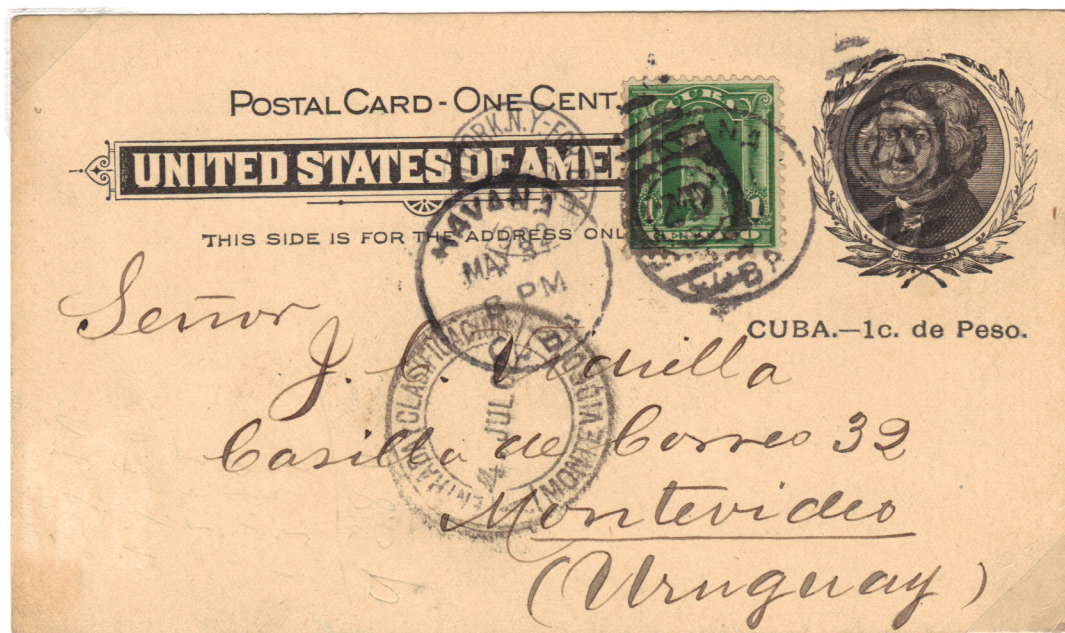 POSTAL CARD - ONE CENT.
UNITED STATES OF AMER
THIS SIDE IS FOR THE ADDRESS ONL
CUBA
1 1
CUBA
JEFFERSON
CUBA.—1c. de Peso.
YORK.N.Y.
HAVANA
MAY
8 PM
CLASIFICACION
4 JUL
MONTEVIDEO
Señor
J. C. Vidiella
Casilla de Correo 32
Montevideo
(Uruguay)